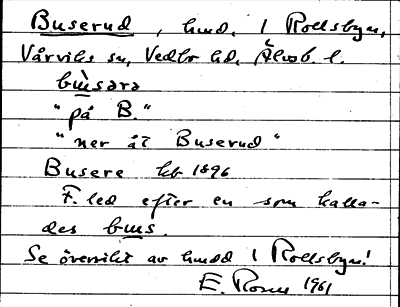 Buserud, hmd. i Rollsbyn,
Vårviks sn, Vedbo hd, Älvsb. l.
bùsərə
"på B."
"ner åt Buserud"
Busere kb 1896
F. led efter en som kalla-
des bus.
Se översikt av hmdd i Rollsbyn!
E. Rosen 1961